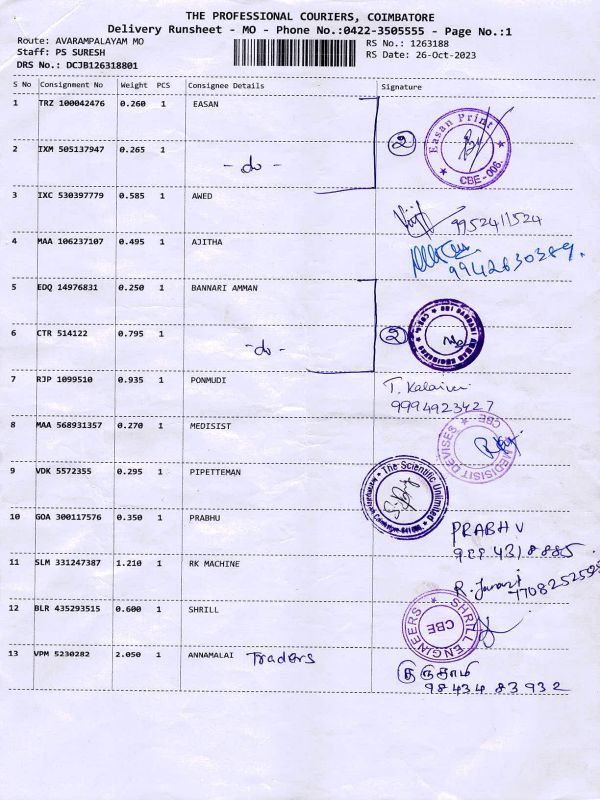 THE PROFESSIONAL COURIERS, COIMBATORE
Delivery Runsheet - MO - Phone No.:0422-3505555 - Page No.:1
Route: AVARAMPALAYAM MO
Staff: PS SURESH
DRS No.: DCJB126318801
RS No.: 1263188
RS Date: 26-Oct-2023
S No Consignment No Weight PCS Consignee Details Signature
1 TRZ 100042476 0.260 1 EASAN
Easan Print
CBE-006.
2
2 IXM 505137947 0.265 1 -do-
3 IXC 530397779 0.585 1 AWED
9952411524
4 MAA 106237107 0.495 1 AJITHA
9942630389.
5 EDQ 14976831 0.250 1 BANNARI AMMAN
2
6 CTR 514122 0.795 1 -do-
7 RJP 1099510 0.935 1 PONMUDI
9994923427
8 MAA 568931357 0.270 1 MEDISIST
MEDISIST DEVISES
CBE
9 VDK 5572355 0.295 1 PIPETTEMAN
The Scientific Unlimited
10 GOA 300117576 0.350 1 PRABHU
PRABHU
11 SLM 331247387 1.210 1 RK MACHINE
12 BLR 435293515 0.600 1 SHRILL
SHRILL ENGINEERS
CBE
13 VPM 5230282 2.050 1 ANNAMALAI Traders
98434 83932